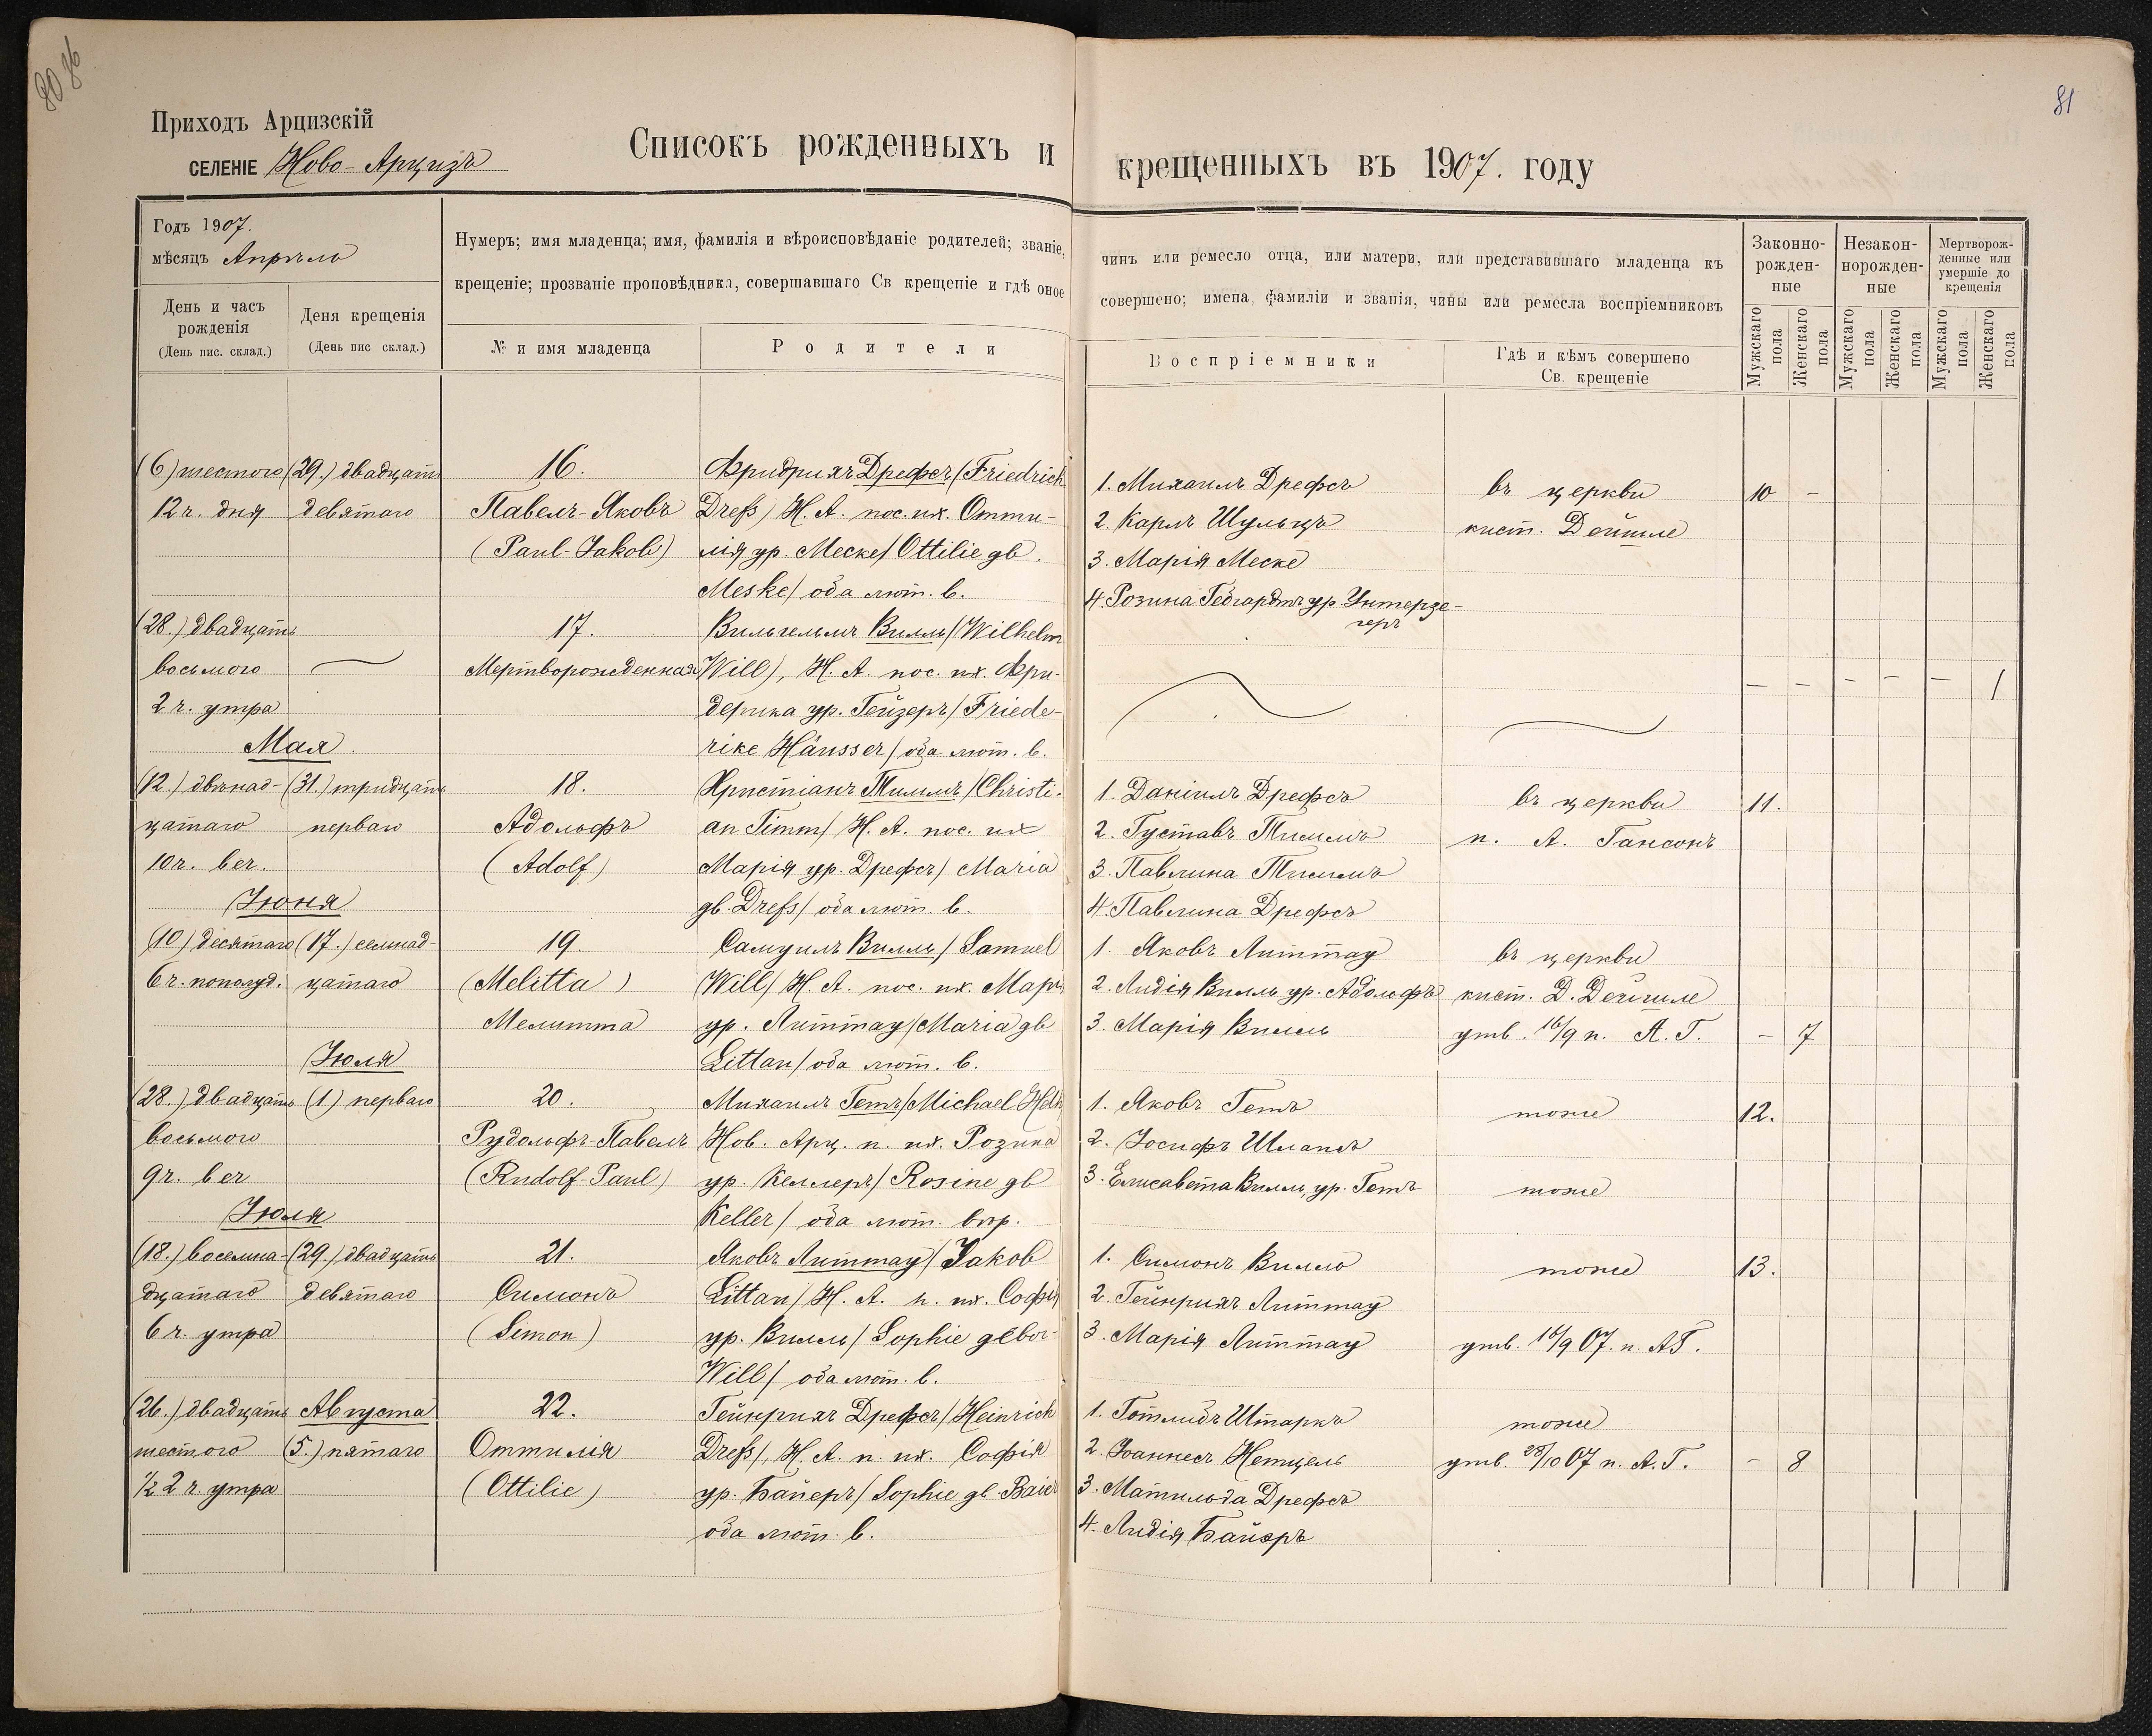 80 86
81
Приходъ Арцизскій
СЕЛЕНІЕ Ново-Арцизъ
Списокъ рожденныхъ и крещенныхъ въ 1907. году
Годъ 1907.
мѣсяцъ Апрѣль
День и часъ рожденія
(День пис. склад.)
Деня крещенія
(День пис склад.)
Нумеръ; имя младенца; имя, фамилія и вѣроисповѣданіе родителей; званіе,
чинъ или ремесло отца, или матери, или представившаго младенца къ
крещеніе; прозваніе проповѣдника, совершавшаго Св крещеніе и гдѣ оное
совершено; имена фамиліи и званія, чины или ремесла воспріемниковъ
№ и имя младенца
Родители
Воспріемники
Гдѣ и кѣмъ совершено
Св. крещеніе
Законно-
рожден-
ные
Незакон-
норожден-
ные
Мертворож-
денные или
умершіе до
крещенія
Мужскаго пола
Женскаго пола
Мужскаго пола
Женскаго пола
Мужскаго пола
Женскаго пола
(6) шестого (29.) двадцать 16. Фридрихъ Дрефсъ (Friedrich 1. Михаилъ Дрефсъ въ церкви 10 -
12 ч. дня девятаго Павелъ-Яковъ Drefs) Н. А. пос. их. Отти- 2. Карлъ Шульцъ кист. Дейшле
(Paul-Jakob) лія ур. Меске (Ottilie gb. 3. Марія Меске
Meske) оба лют. в. 4. Розина Гебгардтъ ур. Унтерзе-
геръ
(28.) двадцать 17. Вильгельмъ Вилль (Wilhelm
восьмого Мертворожденная Will), Н. А. пос. их. Фри- — — — — — 1
2 ч. утра дерика ур. Гейзеръ (Friede-
Мая. rike Häusser) оба лют. в.
(12.) двѣнад- (31.) тридцать 18. Христіанъ Тиммъ (Christi- 1. Даніилъ Дрефсъ въ церкви 11.
цатаго перваго Адольфъ an Timm) Н. А. пос. их 2. Густавъ Тиммъ п. А. Гансонъ
10 ч. веч. (Adolf) Марія ур. Дрефсъ (Maria 3. Павлина Тиммъ
Іюня gb. Drefs) оба лют. в. 4. Павлина Дрефсъ
(10) десятаго (17.) семнад- 19. Самуилъ Вилль (Samuel 1. Яковъ Литтау въ церкви
6 ч. пополуд. цатаго (Melitta) Will) Н. А. пос. их. Марія 2. Лидія Вилль ур. Адольфъ кист. Д. Дейшле
Мелитта ур. Литтау (Maria gb 3. Марія Вилль утв. 16/9 п. А. Г. - 7
Іюля Littau) оба лют. в.
(28.) двадцать (1) перваго 20. Михаилъ Гетъ (Michael Heth 1. Яковъ Гетъ тоже 12.
восьмого Рудольфъ-Павелъ Нов. Арц. п. их. Розина 2. Іосифъ Шлапъ
9 ч. веч (Rudolf-Paul) ур. Келлеръ (Rosine gb 3. Елисавета Вилль, ур. Гетъ тоже
Іюля Keller) оба лют. вѣр.
(18.) восемна- (29.) двадцать 21. Яковъ Литтау (Jakob 1. Симонъ Вилль тоже 13.
дцатаго девятаго Симонъ Littau) Н. А. п. их. Софія 2. Гейнрихъ Литтау
6 ч. утра (Simon) ур. Вилль (Sophie gebor- 3. Марія Литтау утв. 16/9 07. п. АГ.
Will) оба лют. в.
(26.) двадцать Августа 22. Гейнрихъ Дрефсъ (Heinrich 1. Готлибъ Штаркъ тоже
шестого (5.) пятаго Оттилія Drefs), Н. А. п. их. Софія 2. Іоаннесъ Нетцель утв. 28/10 07 п. А. Г. - 8
1/2 2 ч. утра (Ottilie) ур. Байеръ (Sophie gb. Baier 3. Матильда Дрефсъ
оба лют. в. 4. Лидія Байэръ